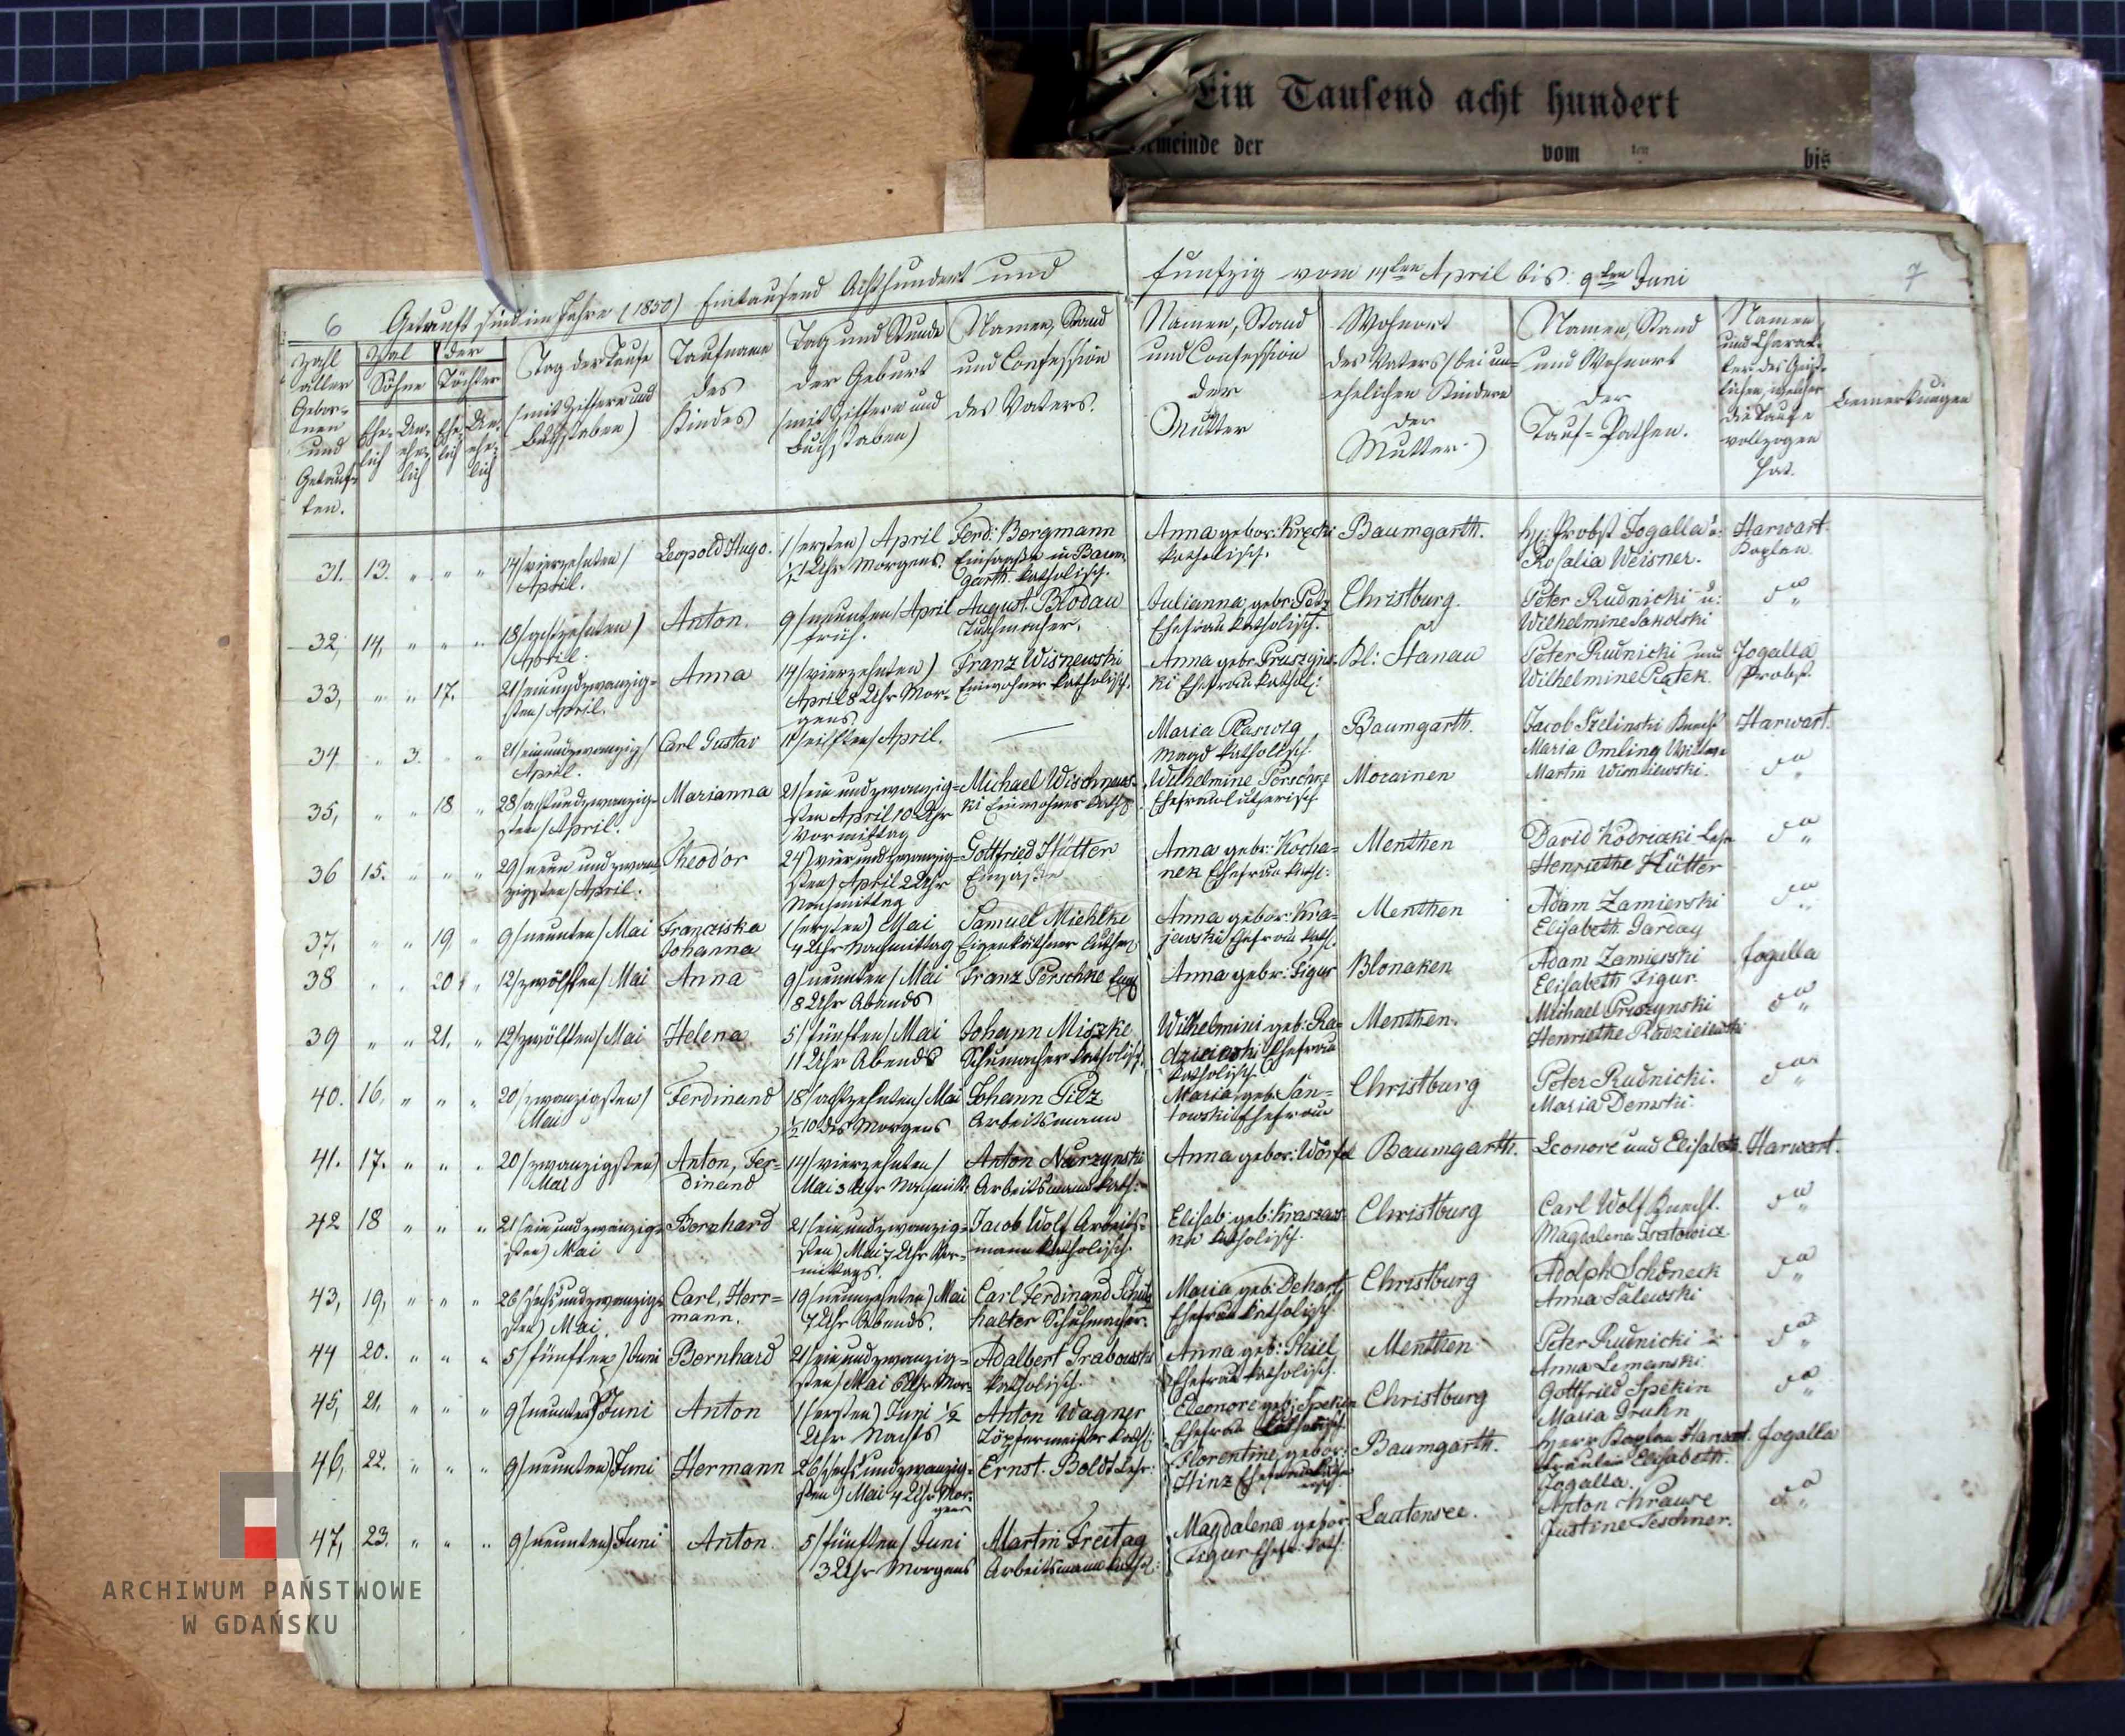 Ein Tausend acht hundert
meinde der vom ten bis
6 Getauft sind im Jahre (1850) Eintausend Achthundert und fünfzig vom 14ten April bis 9ten Juni 7
Zahl aller Gebornen und Getauften.
Zal der
Söhne Töchter
Ehelich Unehelich Ehelich Unehelich
Tag der Taufe (mit Ziffern und Buchstaben)
Taufname des Kindes
Tag und Stunde der Geburt (mit Ziffern und Buchstaben)
Namen, Stand und Confession des Vaters.
Namen, Stand und Confession der Mutter
Wohnort des Vaters (bei unehelichen Kindern der Mutter)
Namen, Stand und Wohnort der Tauf-Pathen.
Namen und Charakter des Geistlichen, welcher die Taufe vollzogen hat.
Bemerkungen
31. 13. " " " 14/vierzehnten/ April. Leopold Hugo. 1/ersten) April 1/2 1 Uhr Morgens. Ferd: Bergmann Einsaße in Baumgarth. katholisch. Anna gebor: katholisch. Baumgarth. H: Probst Jogalla u: Rosalia Weisner. Harwart. Kaplan
32, 14, " " " 18/achtzehnten) April. Anton. 9/neunten/April früh. August Blodau Tuchmacher. Julianna gebr: Ehefrau katholisch. Christburg. Peter Rudnicki u: Wilhelmine Sakolski do "
33, " " 17. 21/einundzwanzigsten/April. Anna 14/vierzehnten) April 8 Uhr Morgens. Franz Wisnewski Einwohner katholisch. Anna gebr: Pruszynski Ehefrau kathol: Kl: Stanau Peter Rudnicki und Wilhelmine Jogalla Probst.
34, " 3. " " 21/einundzwanzig/ April. Carl Gustav 11/eilften/April. — Maria Magd katholisch. Baumgarth. Jacob Knecht Maria Omling Harwart.
35, " " 18 " 28/achtundzwanzigsten/April. Marianna 21/ein undzwanzigsten April 10 Uhr Vormittag Michael Wischnewski Einwohner kath: Wilhelmine Perschke Ehefrau lutherisch. Morainen Martin do "
36 15. " " " 29/neun und zwanzigsten/April. Theodor 24) vierundzwanzigsten) April 2 Uhr Nachmittag Gottfried Hütter Einsaße Anna gebr: Kochanek Ehefrau kath: Menthen David Henriethe Hütter do "
37, " " 19 " 9/neunten/Mai Franciska Johanna 1/ersten) Mai 4 Uhr Nachmittag Samuel Miehlke Eigenkäthner Anna gebor: Krajewski Ehefrau kath. Menthen Adam Zamierski Elisabeth Garday do "
38 " " 20 " 12/zwölften/Mai Anna 9/neunten/Mai 8 Uhr Abends Franz Perschke Anna gebr: Figur Blonaken Adam Zamierski Elisabeth Figur. Jogalla
39 " " 21. " 12/zwölften/Mai Helena 5/fünften/Mai 11 Uhr Abends Johann Miszke Schumacher katholisch. Wilhelmini geb: Radzieiewski Ehefrau katholisch. Menthen. Michael Pruszynski Henriethe Radzieiewski do "
40. 16. " " " 20/zwanzigsten/ Mai Ferdinand 18/achtzehnten/Mai 1/2 10 des Morgens Johann Pilz Arbeitsmann Maria geb: Santowski Ehefrau Christburg Peter Rudnicki. Maria Demski. do "
41. 17. " " " 20/zwanzigsten) Mai Anton, Ferdinand 14/vierzehnten/ Mai 3 Uhr Nachmitt. Anton Nurzynski Arbeitsmann kath: Anna gebor: Baumgarth. Leonore und Elisabeth. Harwart.
42 18 " " " 21/ein undzwanzigsten) Mai Bernhard 21/ein undzwanzigsten) Mai 7 Uhr Vormittags. Jacob Wolf Arbeitsmann katholisch. Elisab: geb: katholisch. Christburg Carl Wolf Knecht. Magdalena do "
43, 19, " " " 26/sechsundzwanzigsten) Mai. Carl, Herrmann. 19/neunzehnten) Mai 7 Uhr Abends. Carl Ferdinand Schuhmacher. Maria geb: Ehefrau katholisch. Christburg Adolph Schöneck Anna Salewski do "
44 20. " " " 5/fünften/Juni Bernhard 21/einundzwanzigsten/Mai 6 Uhr Mor: Adalbert Grabowski katholisch. Anna geb: Thiel Ehefrau katholisch. Menthen Peter Rudnicki u: Anna Lemanski do "
45, 21. " " " 9/neunten)Juni Anton 1/ersten) Juni 1/2 Uhr Nachts Anton Wagner Töpfermeister kath: Eleonore geb: Spekin Ehefrau Christburg Gottfried Spekin Maria Druhn do "
46, 22. " " " 9/neunten)Juni Hermann 26/sechsundzwanzigsten) Mai 4 Uhr Morgens Ernst. Boldt Florentine gebor: Hinz Baumgarth. Herr Kaplan Harwart. Fräulein Elisabeth. Jogalla. Jogalla
47, 23. " " " 9/neunten)Juni Anton. 5/fünften/Juni 3 Uhr Morgens Martin Freitag Arbeitsmann kath: Magdalena gebor: Figur Ehefr. kath. Lautensee. Anton Krause Justine Teschner. do "
ARCHIWUM PAŃSTWOWE
W GDAŃSKU